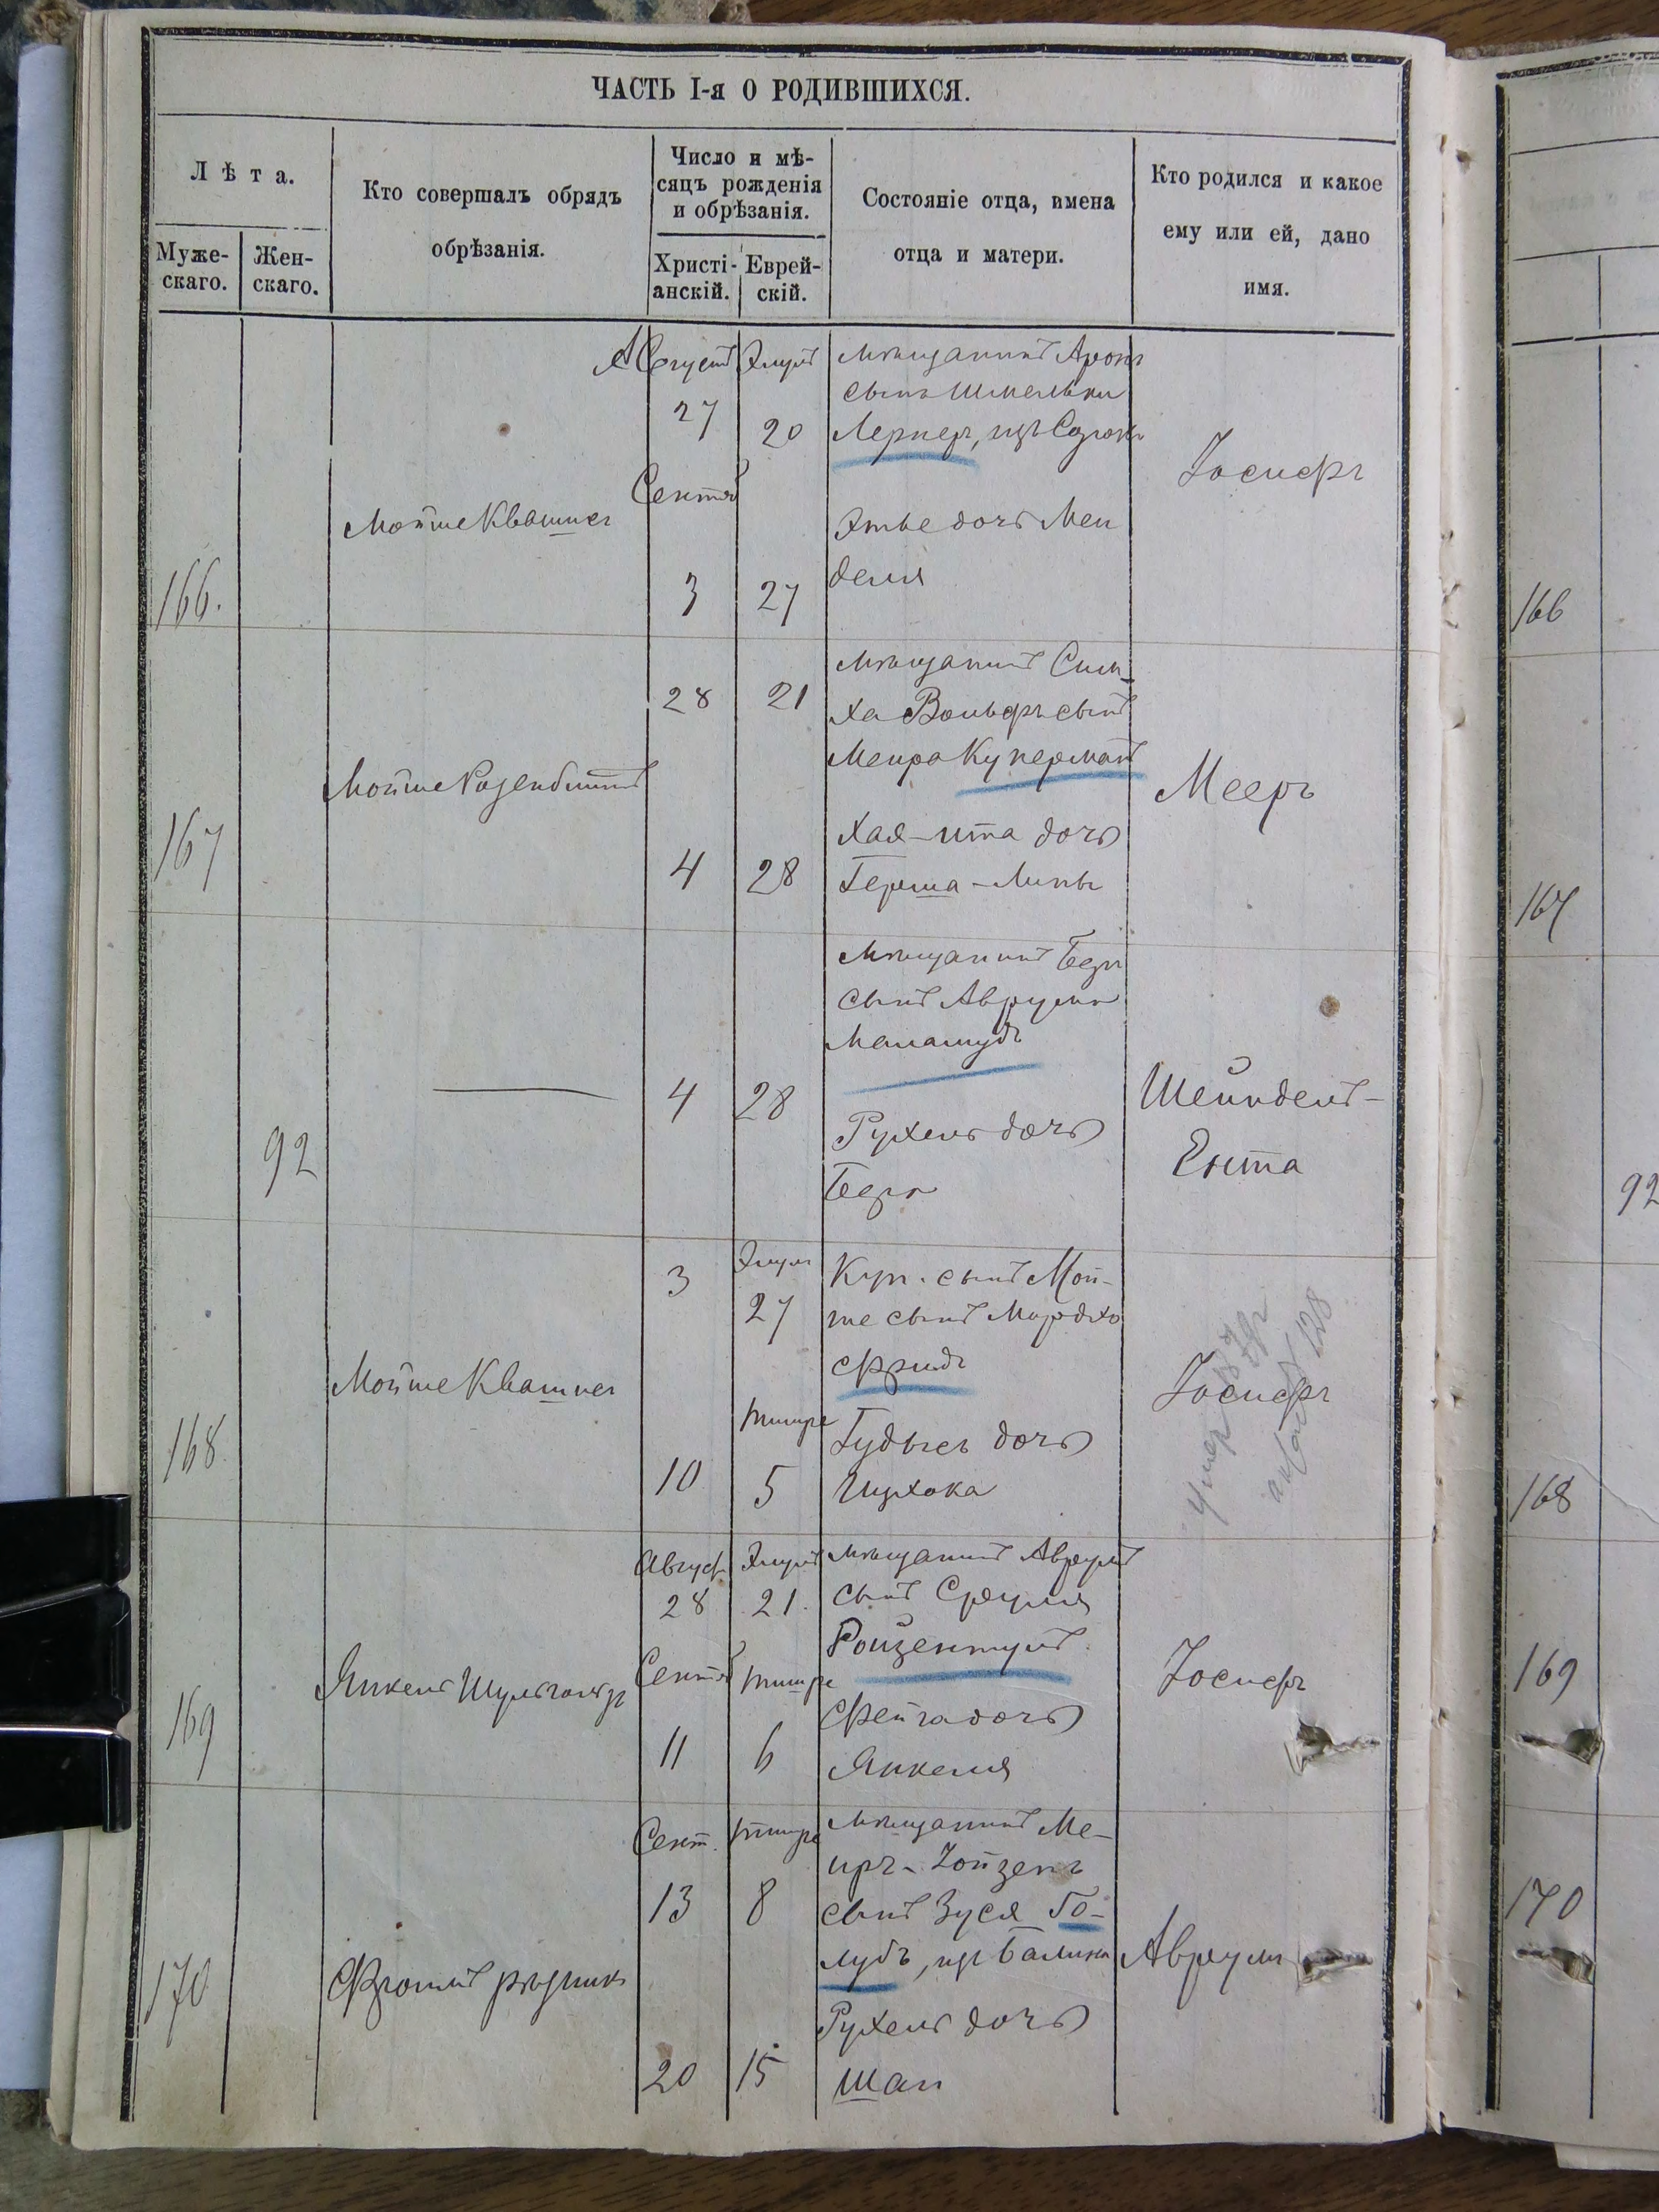 ЧАСТЬ I-я О РОДИВШИХСЯ.
Лѣта.
Муже-
скаго.
Жен-
скаго.
Кто совершалъ обрядъ
обрѣзанія.
Число и мѣ-
сяцъ рожденія
и обрѣзанія.
Христі-
анскій.
Еврей-
скій.
Состояніе отца, имена
отца и матери.
Кто родился и какое
ему или ей, дано
имя.
166.
Мойше Квашнег
Августъ
27
Сентяб
3
Элулъ
20
27
Мѣщанинъ Аронъ
сынъ Шмельки
Лернеръ, изъ
Этье дочь Мен
деля
Іосифъ
167
Мойше Розенблитъ
28
4
21
28
Мѣщанинъ Сим-
ха Вольфъ сынъ
Меира Куперманъ
Хая-Ита дочь
Герша-Липы
Мееръ
92
4
28
Мѣщанинъ Берк
сынъ Аврума
Меламудъ
Рухель дочь
Берк
Шейндель-
Ента
168
Мойше Квашнег
3
10
Элулъ
27
тишре
5
Куп. сынъ Мой-
ше сынъ Мордхо
Фридъ
Гудысь дочь
Ицхока
Іосифъ
Умеръ
128
169
Янкель Шульгольц
Август
28
Сентяб
11
Элулъ
21.
тишре
6
Мѣщанинъ Аврумъ
сынъ Сруля
Ройзентулъ
Фейга дочь
Янкеля
Іосифъ
170
Фроимъ рѣзникъ
Сент.
13
20
тишре
8
15
Мѣщанинъ Ме-
иръ-Зойзенъ
сынъ Зуся Го-
лубъ, изъ Балины
Рухель дочь
Шаи
Аврумъ
166
167
92
168
169
170